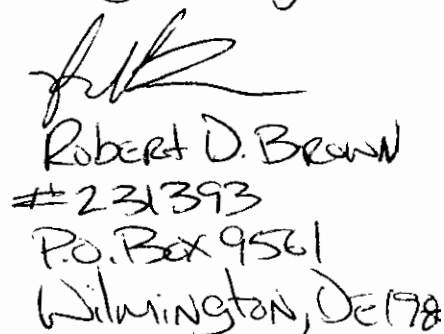 Robert D. Brown
#231393
P.O. Box 9561
Wilmington, DE 198